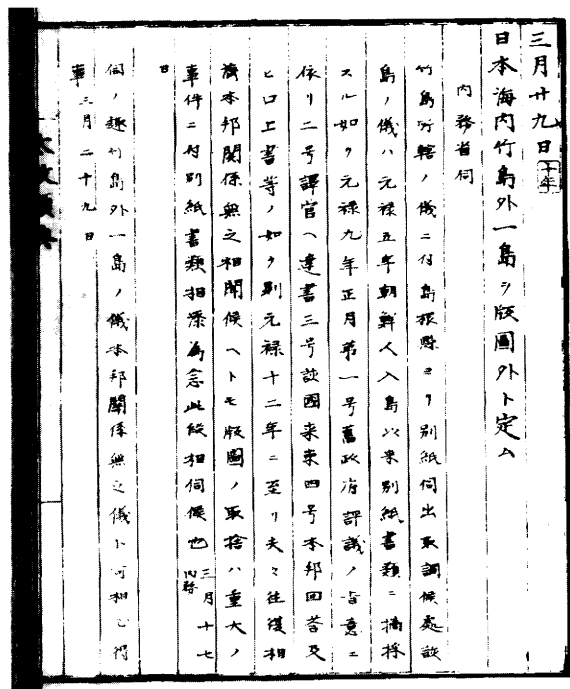 三月廿九日 十年
日本海内竹島外一島ヲ版圖外ト定ム
内務省伺
竹島所轄ノ儀ニ付島根縣ヨリ別紙伺出取調候處該
島ノ儀ハ元禄五年朝鮮人入島以来別紙書類ニ摘採
スル如ク元禄九年正月第一号舊政府評議ノ旨意ニ
依リ二号譯官ヘ達書三号該國来柬四号本邦回答及
ヒ口上書等ノ如ク則元禄十二年ニ至リ夫々往復相
濟本邦関係無之相聞候ヘトモ版圖ノ取捨ハ重大ノ
事件ニ付別紙書類相添為念此段相伺候也 三月十七
日 内務
伺ノ趣竹島外一島ノ儀本邦關係無之儀ト可相心得
事 三月二十九日